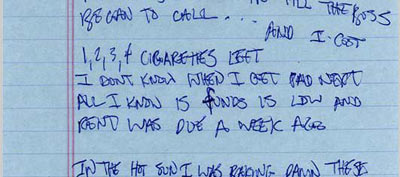 TILL THE BOSS
BEGAN TO CALL...
AND I GOT
1, 2, 3, 4 CIGARETTES LEFT
I DONT KNOW WHEN I GET PAID NEXT
ALL I KNOW IS FUNDS IS LOW AND
RENT WAS DUE A WEEK AGO
IN THE HOT SUN I WAS RAKING DOWN THESE